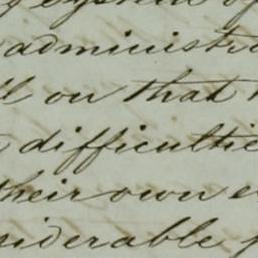 system of
administra
on that
difficultie
their own e
siderable